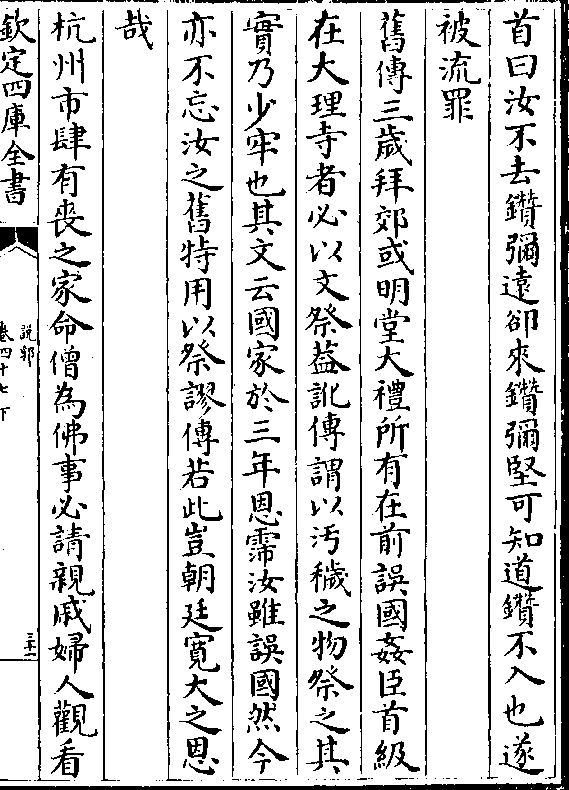 首曰汝不去鑽彌遠卻來鑽彌堅可知道鑽不入也遂
被流罪
舊傳三歲拜郊或明堂大禮所有在前誤國姦臣首級
在大理寺者必以文祭葢訛傳謂以汚穢之物祭之其
實乃少牢也其文云國家於三年恩霈汝雖誤國然今
亦不忘汝之舊特用以祭謬傳若此豈朝廷寛大之恩
哉
杭州市肆有喪之家命僧為佛事必請親戚婦人觀看
欽定四庫全書
說郛
卷四十七下